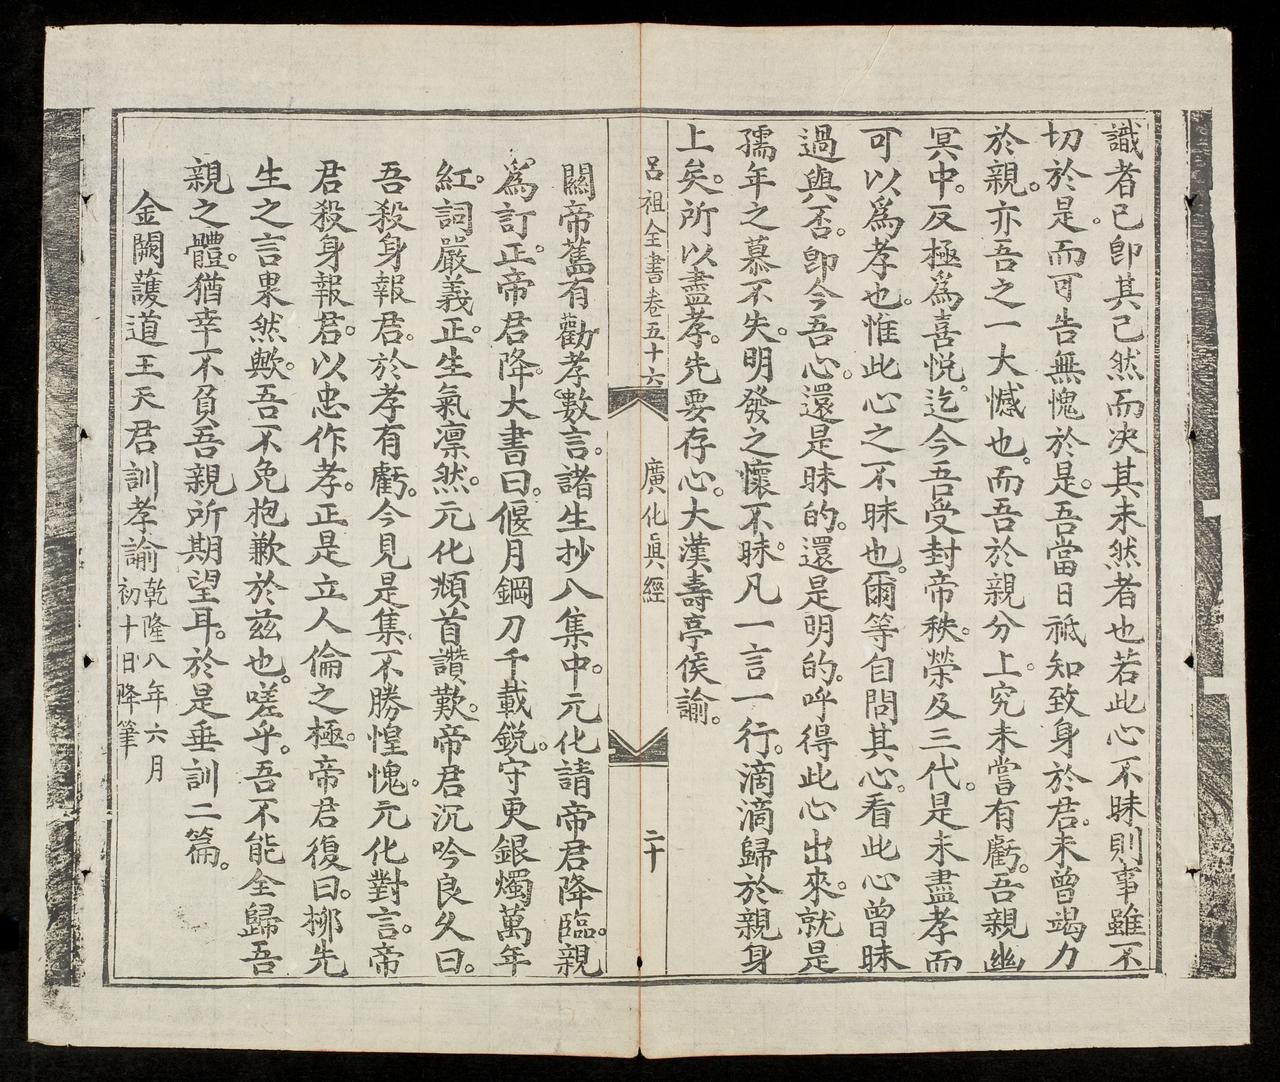 識者已卽其已然而决其未然者也若此心不昧則事雖不
切於是。而可告無愧於是。吾當日祗知致身於君。未曾竭力
於親。亦吾之一大憾也。而吾於親分上。究未嘗有虧。吾親幽
冥中。反極爲喜悅。迄今吾受封帝秩。榮及三代。是未盡孝而
可以爲孝也。惟此心之不昧也。爾等自問其心。看此心曾昧
過與否。卽今吾心。還是昧的。還是明的。呼得此心出來。就是
孺年之慕不失。明發之懷不昧。凡一言一行。滴滴歸於親身
上矣。所以盡孝。先要存心。大漢壽亭侯諭。
呂祖全書卷五十六 廣化眞經 二十
關帝舊有勸孝數言。諸生抄入集中。元化請帝君降臨。親
爲訂正。帝君降。大書曰。偃月鋼刀千載銳。守更銀燭萬年
紅。詞嚴義正。生氣凛然。元化頫首讚歎。帝君沉吟良久曰。
吾殺身報君。於孝有虧。今見是集。不勝惶愧。元化對言。帝
君殺身報君。以忠作孝。正是立人倫之極。帝君復曰。栁先
生之言果然歟。吾不免抱歉於兹也。嗟乎。吾不能全歸吾
親之體。猶幸不負吾親所期望耳。於是垂訓二篇。
金闕護道王天君訓孝諭 乾隆八年六月初十日降筆